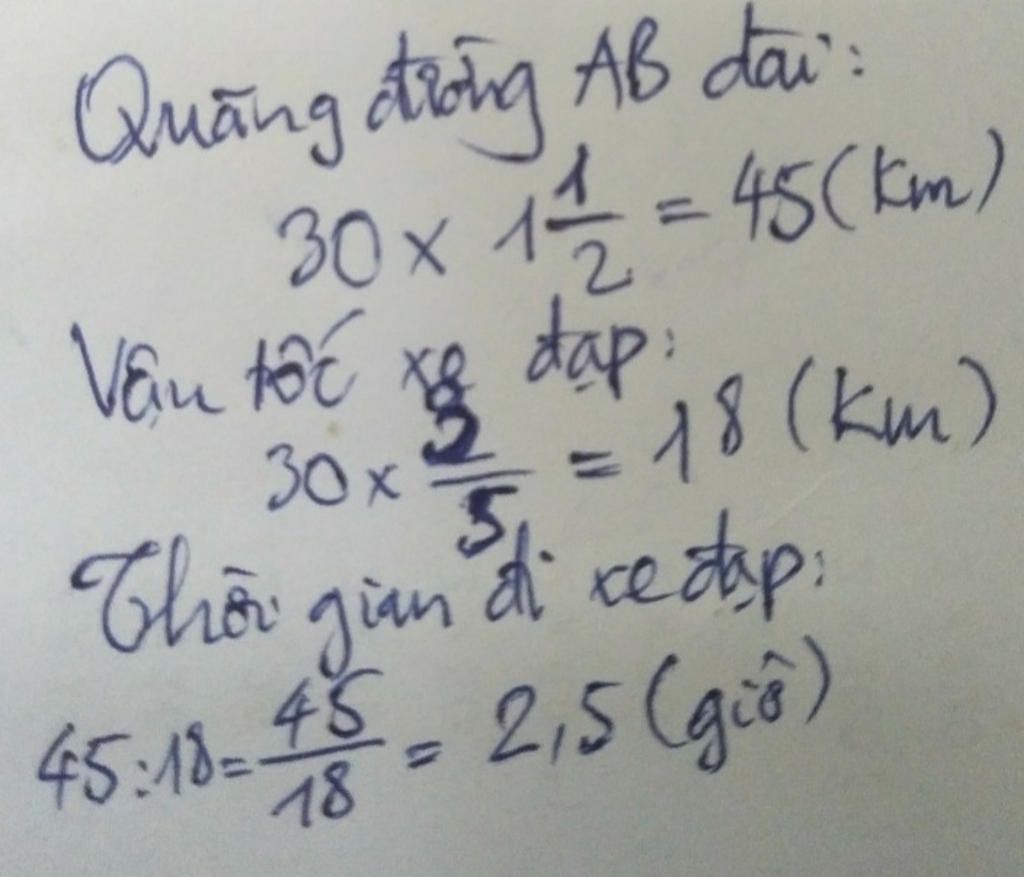 Quãng đường AB dài:
30 x 1 1/2 = 45 (km)
Vận tốc xe đạp:
30 x 3/5 = 18 (km)
Thời gian đi xe đạp:
45:18 = 45/18 = 2,5 (giờ)